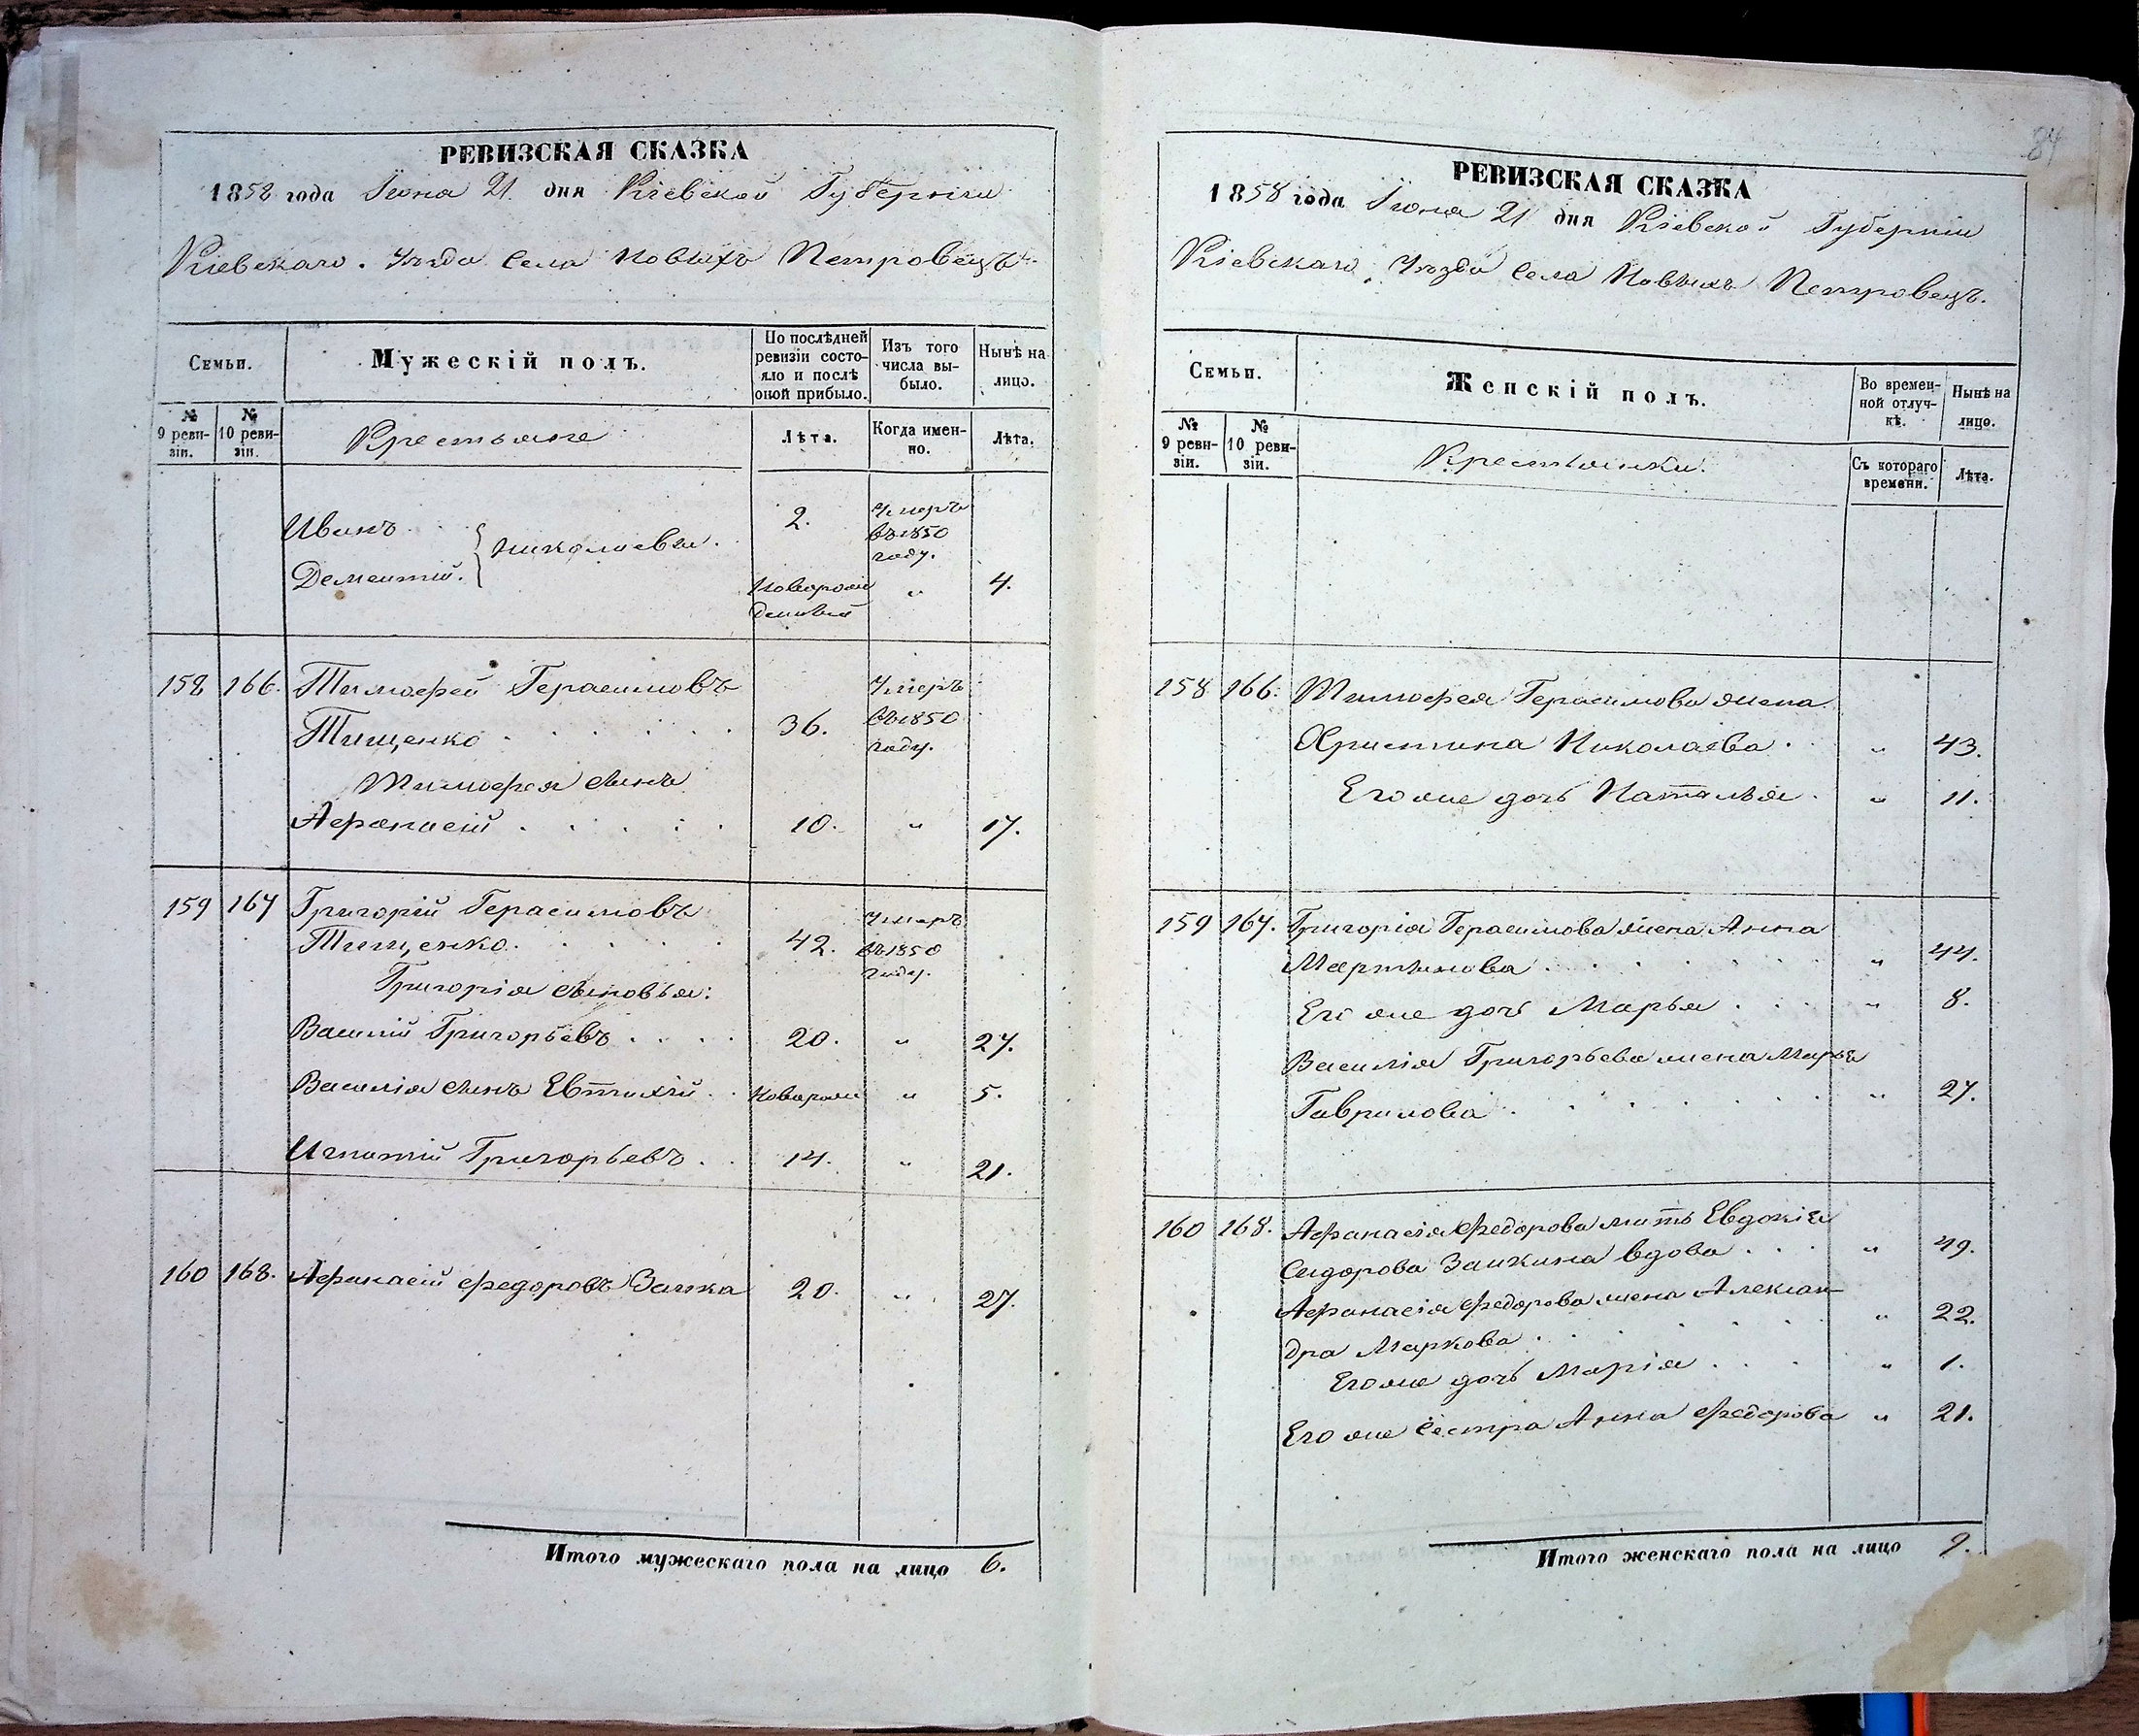 РЕВИЗСКАЯ СКАЗКА
1858 года Іюня 21. дня Кіевской Губерніи
Кіевскаго. Уѣзда Села Новыхъ Петровецъ.
Семьи.
Мужескій полъ.
По послѣдней ревизіи состояло и послѣ оной прибыло.
Изъ того числа выбыло.
Нынѣ на лицо.
№ 9 ревизіи.
№ 10 ревизіи.
Крестьяне
Лѣта.
Когда именно.
Лѣта.
Иванъ 2. Умеръ въ 1850 году.
Николаевы.
Дементій. Новорожденный " 4.
158 166. Тимофей Герасимовъ
Тищенко 36. Умеръ въ 1850 году.
Тимофея сынъ
Афанасій 10. " 17.
159 167 Григорій Герасимовъ
Тищенко. 42. Умеръ въ 1850 году.
Григорія сыновья:
Василій Григорьевъ 20. " 27.
Василія сынъ Евтихій новорож " 5.
Игнатій Григорьевъ 14. " 21.
160 168. Афанасій Федоровъ Заика 20. " 27.
Итого мужескаго пола на лицо 6.
84
РЕВИЗСКАЯ СКАЗКА
1858 года Іюня 21 дня Кіевской Губерніи
Кіевскаго Уѣзда Села Новыхъ Петровецъ.
Семьи.
Женскій полъ.
Во временной отлучкѣ.
Нынѣ на лицо.
№ 9 ревизіи.
№ 10 ревизіи.
Крестьянки.
Съ котораго времени.
Лѣта.
158 166. Тимофея Герасимова жена
Христина Николаева " 43.
Его же дочь Наталья " 11.
159 167. Григорія Герасимова жена Анна
Мартинова " 44.
Его же дочь Марья " 8.
Василія Григорьева жена Марья
Гаврилова " 27.
160 168. Афанасія Федорова мать Евдокія
Сидорова Заикина вдова " 49.
Афанасія Федорова жена Алексан-
дра Маркова " 22.
Его же дочь Марія " 1.
Его же сестра Анна Федорова " 21.
Итого женскаго пола на лицо 9.